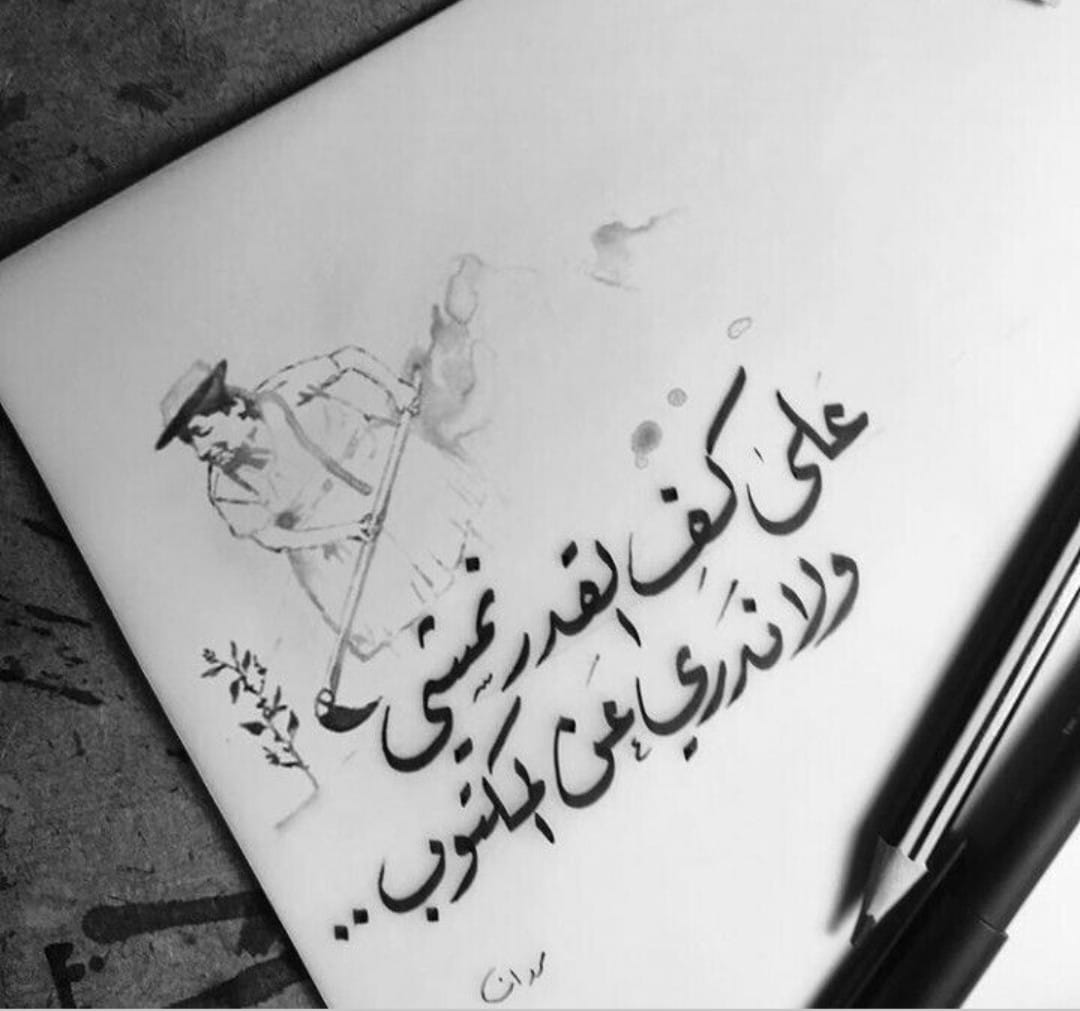 على كف القدر نمشي
ولا ندري عن المكتوب ..